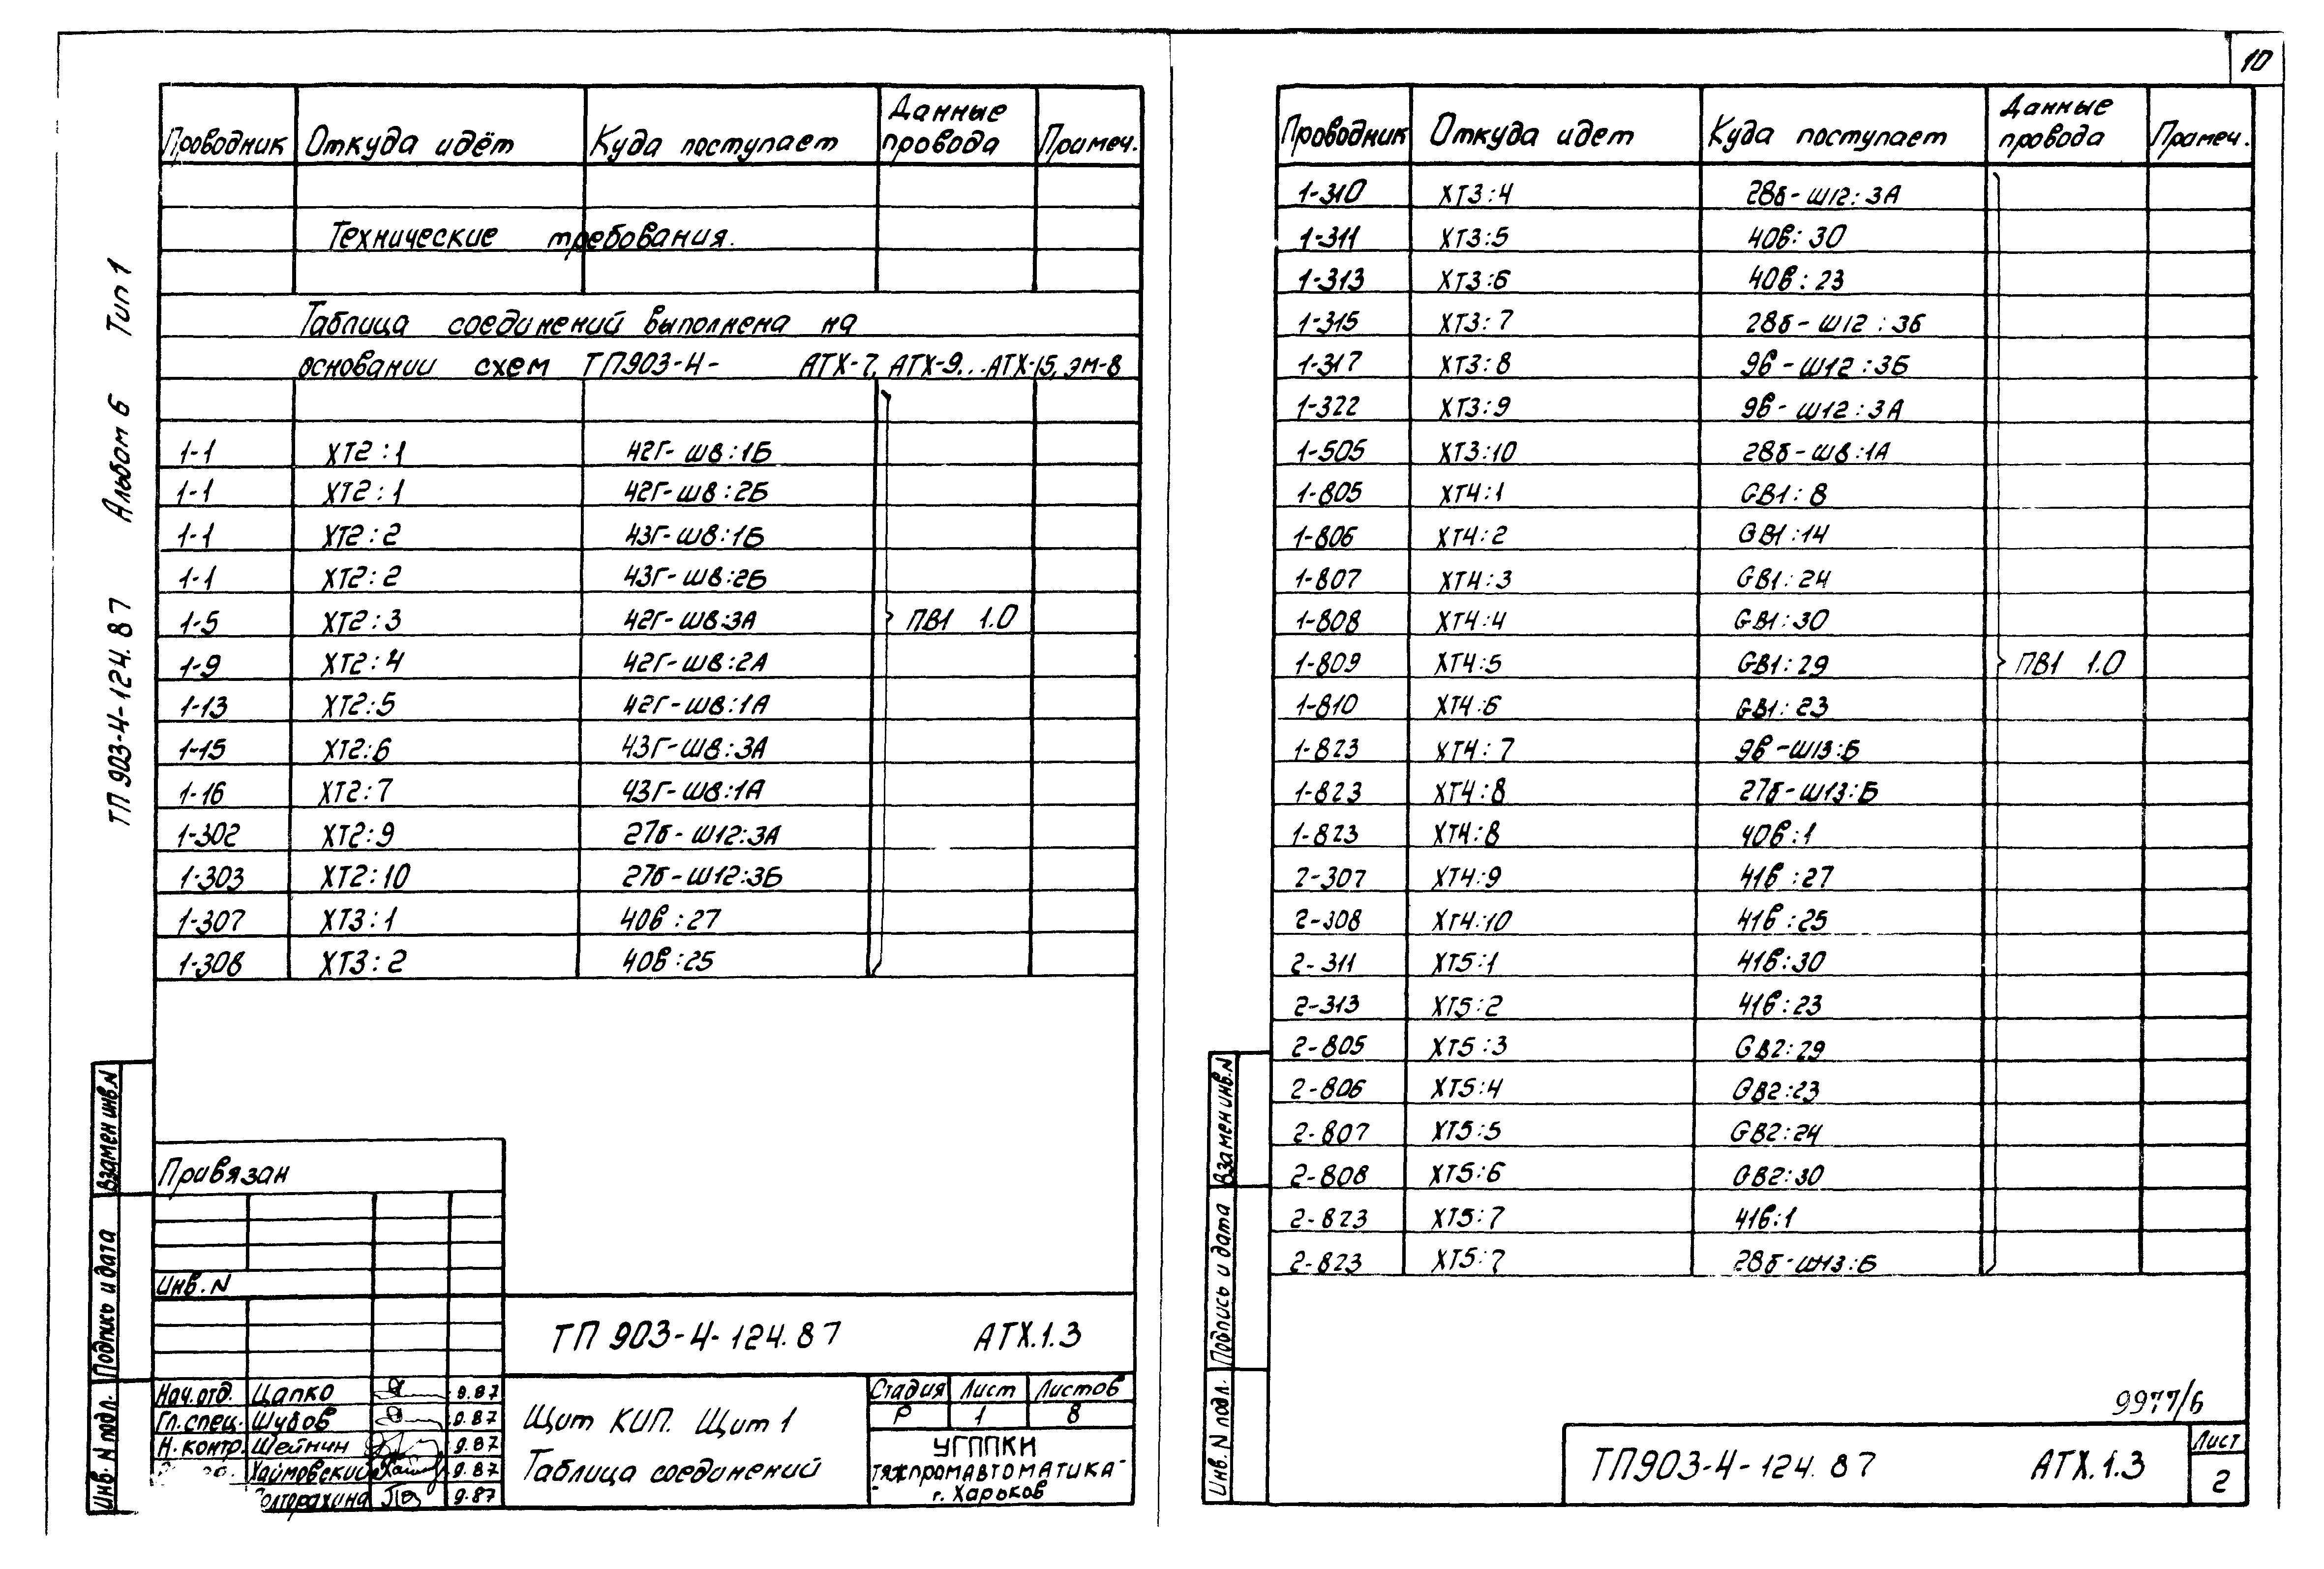 10
ТП 903-4-124.87 Альбом 6 Тип 1
Проводник Откуда идёт Куда поступает Данные провода Примеч.
Технические требования.
Таблица соединений выполнена на
основании схем ТП903-4- АТХ-7, АТХ-9...АТХ-15, ЭМ-8
1-1 ХТ2:1 42Г-ШВ:1Б
1-1 ХТ2:1 42Г-ШВ:2Б
1-1 ХТ2:2 43Г-ШВ:1Б
1-1 ХТ2:2 43Г-ШВ:2Б
1-5 ХТ2:3 42Г-ШВ:3А ПВ1 1.0
1-9 ХТ2:4 42Г-ШВ:2А
1-13 ХТ2:5 42Г-ШВ:1А
1-15 ХТ2:6 43Г-ШВ:3А
1-16 ХТ2:7 43Г-ШВ:1А
1-302 ХТ2:9 27б-Ш12:3А
1-303 ХТ2:10 27б-Ш12:3Б
1-307 ХТ3:1 40в:27
1-308 ХТ3:2 40в:25
Взамен инв.N
Подпись и дата
Инв. N подл.
Привязан
Инв. N
ТП 903-4-124.87 АТХ.1.3
Нач.отд. Цапко 9.87
Гл.спец. Шубов 9.87
Н.контр. Шейнин 9.87
Хаймовский 9.87
9.87
Щит КИП. Щит 1
Таблица соединений
Стадия Лист Листов
Р 1 8
УГППКИ
"ТЯЖПРОМАВТОМАТИКА"
г. Харьков
Проводник Откуда идет Куда поступает Данные провода Примеч.
1-310 ХТ3:4 28б-Ш12:3А
1-311 ХТ3:5 40в:30
1-313 ХТ3:6 40в:23
1-315 ХТ3:7 28б-Ш12:3Б
1-317 ХТ3:8 9в-Ш12:3Б
1-322 ХТ3:9 9в-Ш12:3А
1-505 ХТ3:10 28б-ШВ:1А
1-805 ХТ4:1 GB1:8
1-806 ХТ4:2 GB1:14
1-807 ХТ4:3 GB1:24
1-808 ХТ4:4 GB1:30
1-809 ХТ4:5 GB1:29 ПВ1 1.0
1-810 ХТ4:6 GB1:23
1-823 ХТ4:7 9в-Ш13:Б
1-823 ХТ4:8 27б-Ш13:Б
1-823 ХТ4:8 40в:1
2-307 ХТ4:9 41в:27
2-308 ХТ4:10 41в:25
2-311 ХТ5:1 41в:30
2-313 ХТ5:2 41в:23
2-805 ХТ5:3 GB2:29
2-806 ХТ5:4 GB2:23
2-807 ХТ5:5 GB2:24
2-808 ХТ5:6 GB2:30
2-823 ХТ5:7 41в:1
2-823 ХТ5:7 28б-Ш13:Б
Взамен инв.N
Подпись и дата
Инв. N подл.
9977/6
ТП903-4-124.87 АТХ.1.3
Лист
2